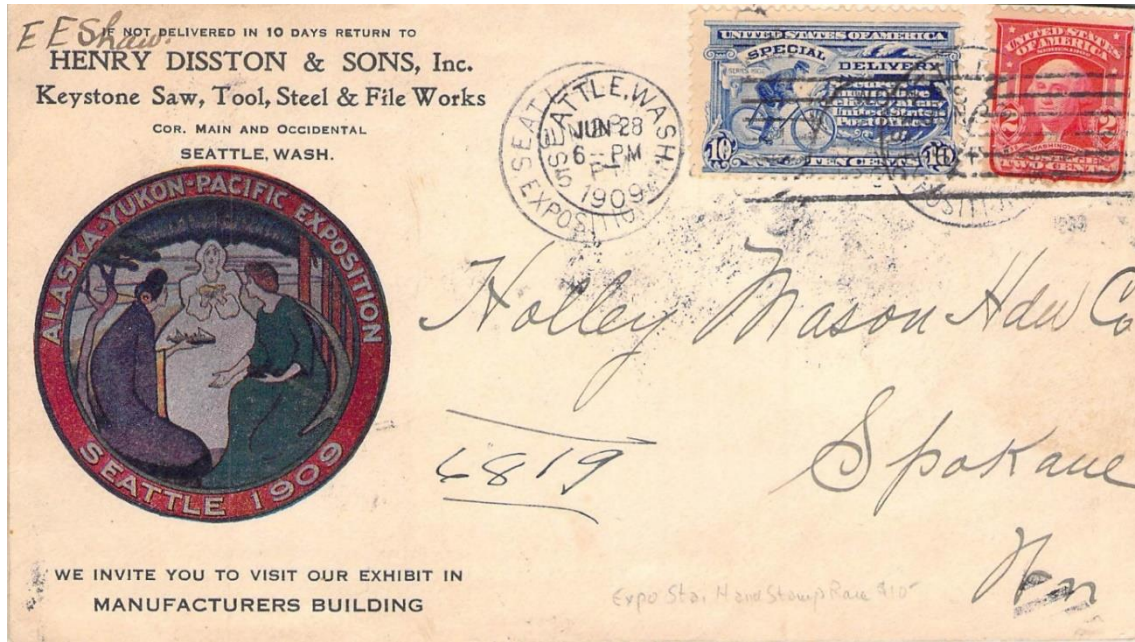 E E Shaw.
IF NOT DELIVERED IN 10 DAYS RETURN TO
HENRY DISSTON & SONS, Inc.
Keystone Saw, Tool, Steel & File Works
COR. MAIN AND OCCIDENTAL
SEATTLE, WASH.
SEATTLE, WASH.
JUN 28
6 - PM
1909
EXPOSITION
UNITED STATES OF AMERICA
SPECIAL DELIVERY
SERIES 1902
10
TEN CENTS
10
UNITED STATES
OF AMERICA
2 2
WASHINGTON
TWO CENTS
ALASKA-YUKON-PACIFIC EXPOSITION
SEATTLE 1909
Holley Mason Hdw Co
6819
Spokane
Wn
WE INVITE YOU TO VISIT OUR EXHIBIT IN
MANUFACTURERS BUILDING
Expo Sta. Hand Stamp Rare $10